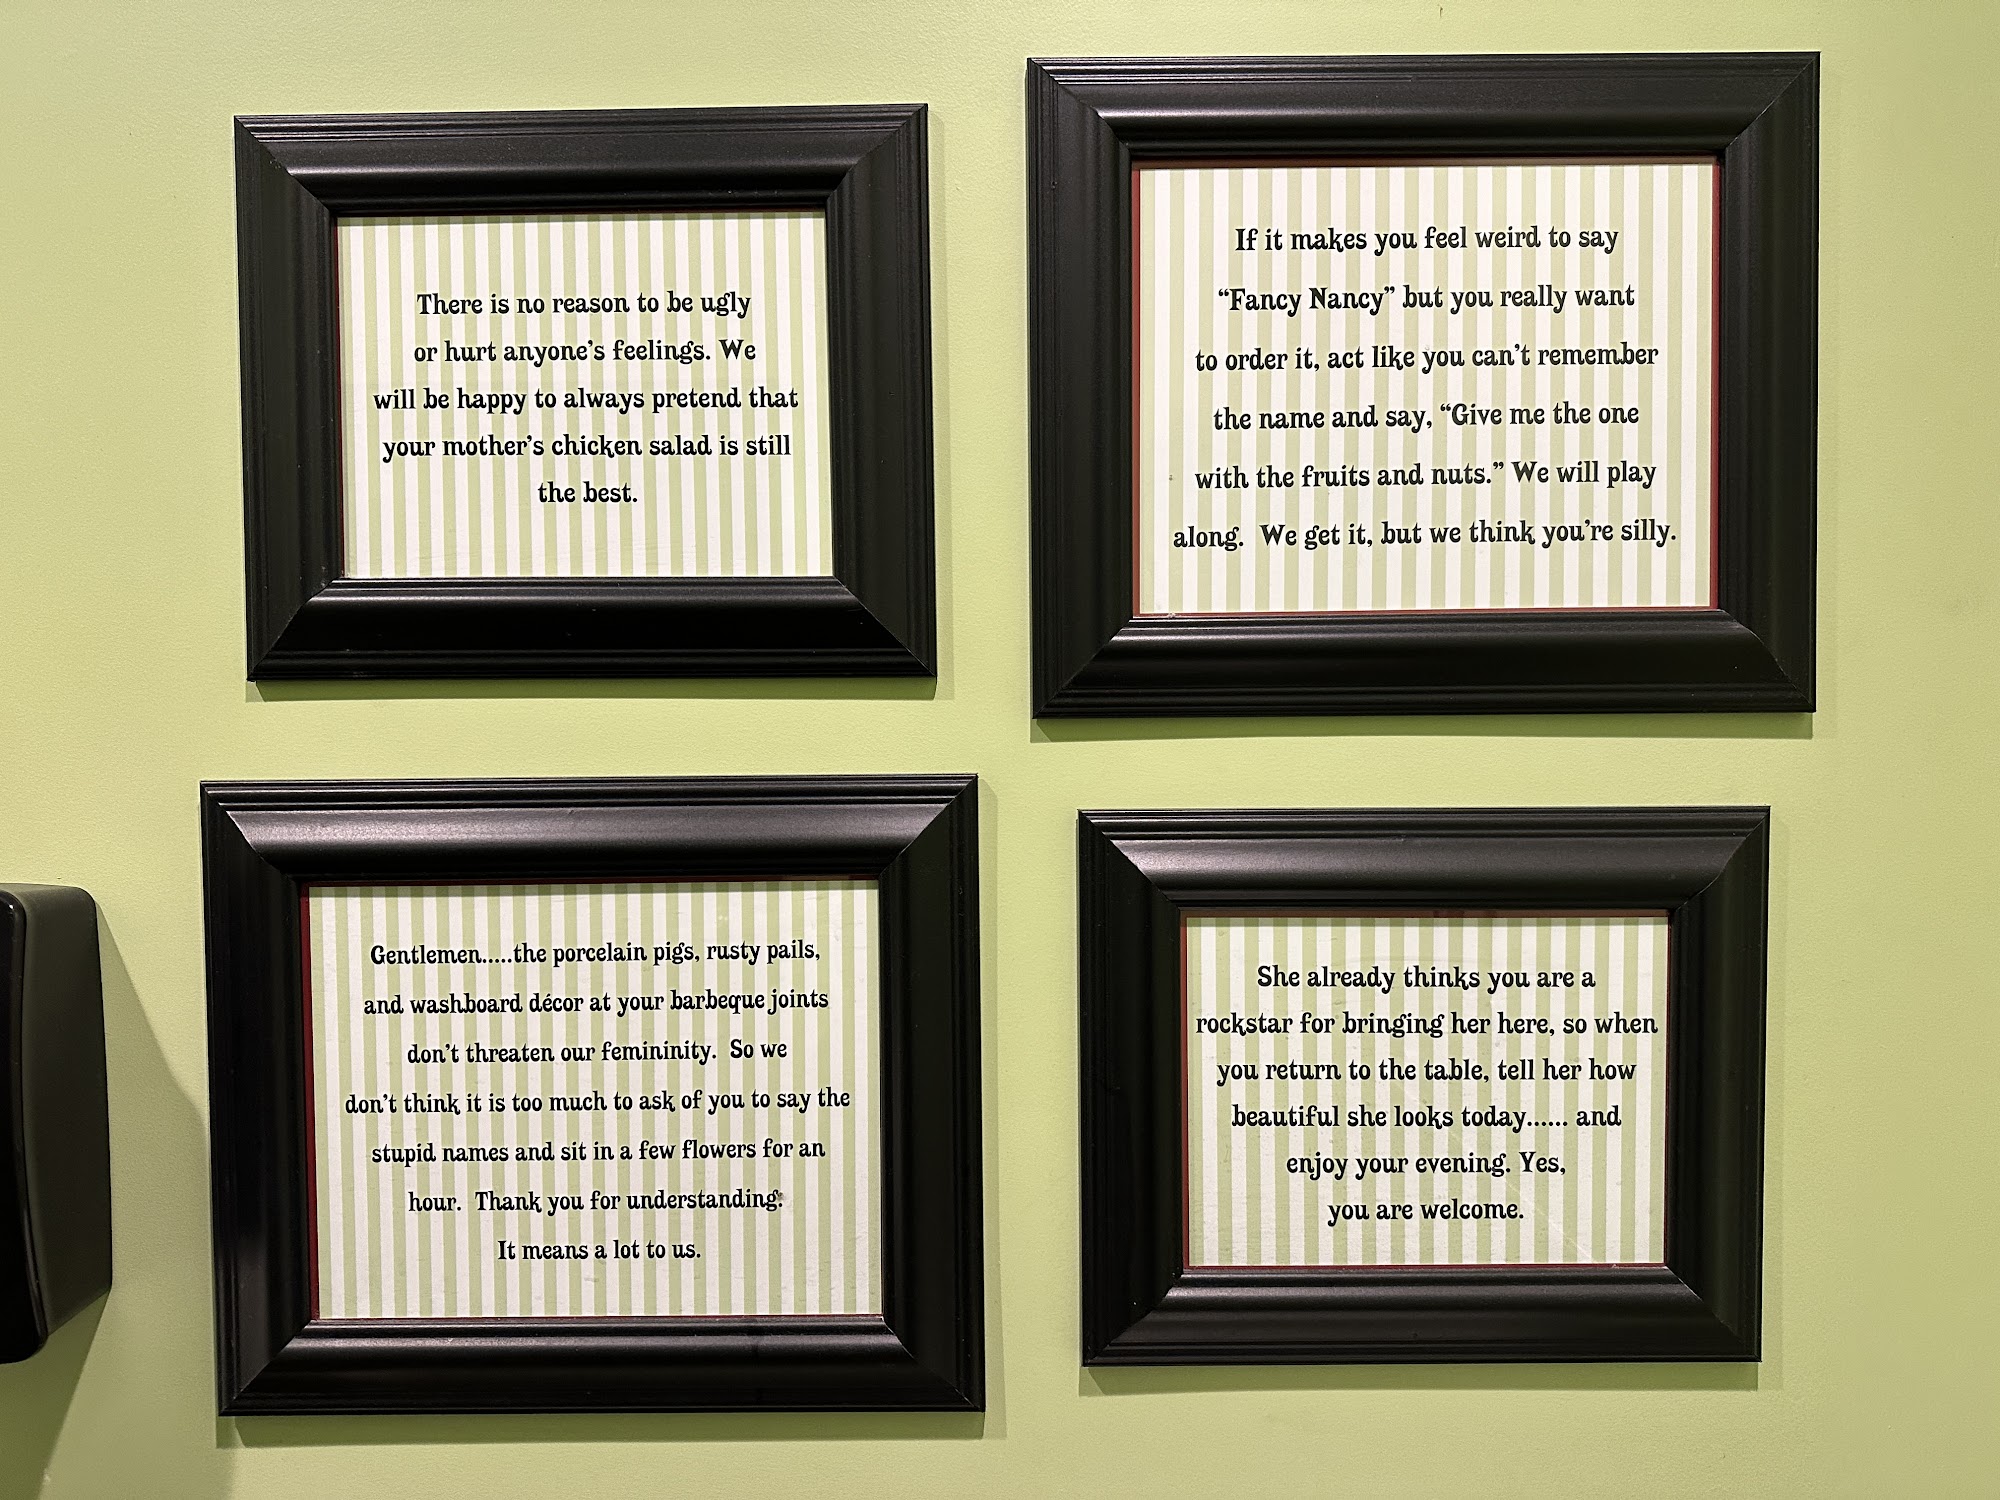 There is no reason to be ugly
or hurt anyone's feelings. We
will be happy to always pretend that
your mother's chicken salad is still
the best.
If it makes you feel weird to say
“Fancy Nancy” but you really want
to order it, act like you can't remember
the name and say, “Give me the one
with the fruits and nuts.” We will play
along.  We get it, but we think you're silly.
Gentlemen.....the porcelain pigs, rusty pails,
and washboard décor at your barbeque joints
don't threaten our femininity.  So we
don't think it is too much to ask of you to say the
stupid names and sit in a few flowers for an
hour.  Thank you for understanding.
It means a lot to us.
She already thinks you are a
rockstar for bringing her here, so when
you return to the table, tell her how
beautiful she looks today...... and
enjoy your evening. Yes,
you are welcome.